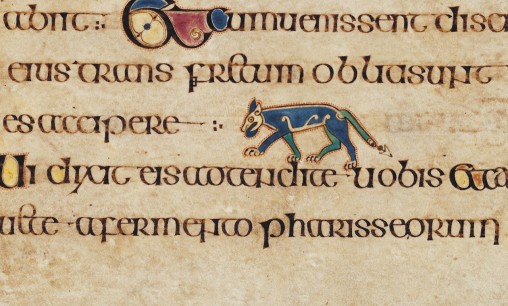 abiit :· Et cumuenissent disci
eius trans fretum obliti sunt
es accipere :·
Qui dixit eis intendite uobis et ca
uete a fermento pharisseorum